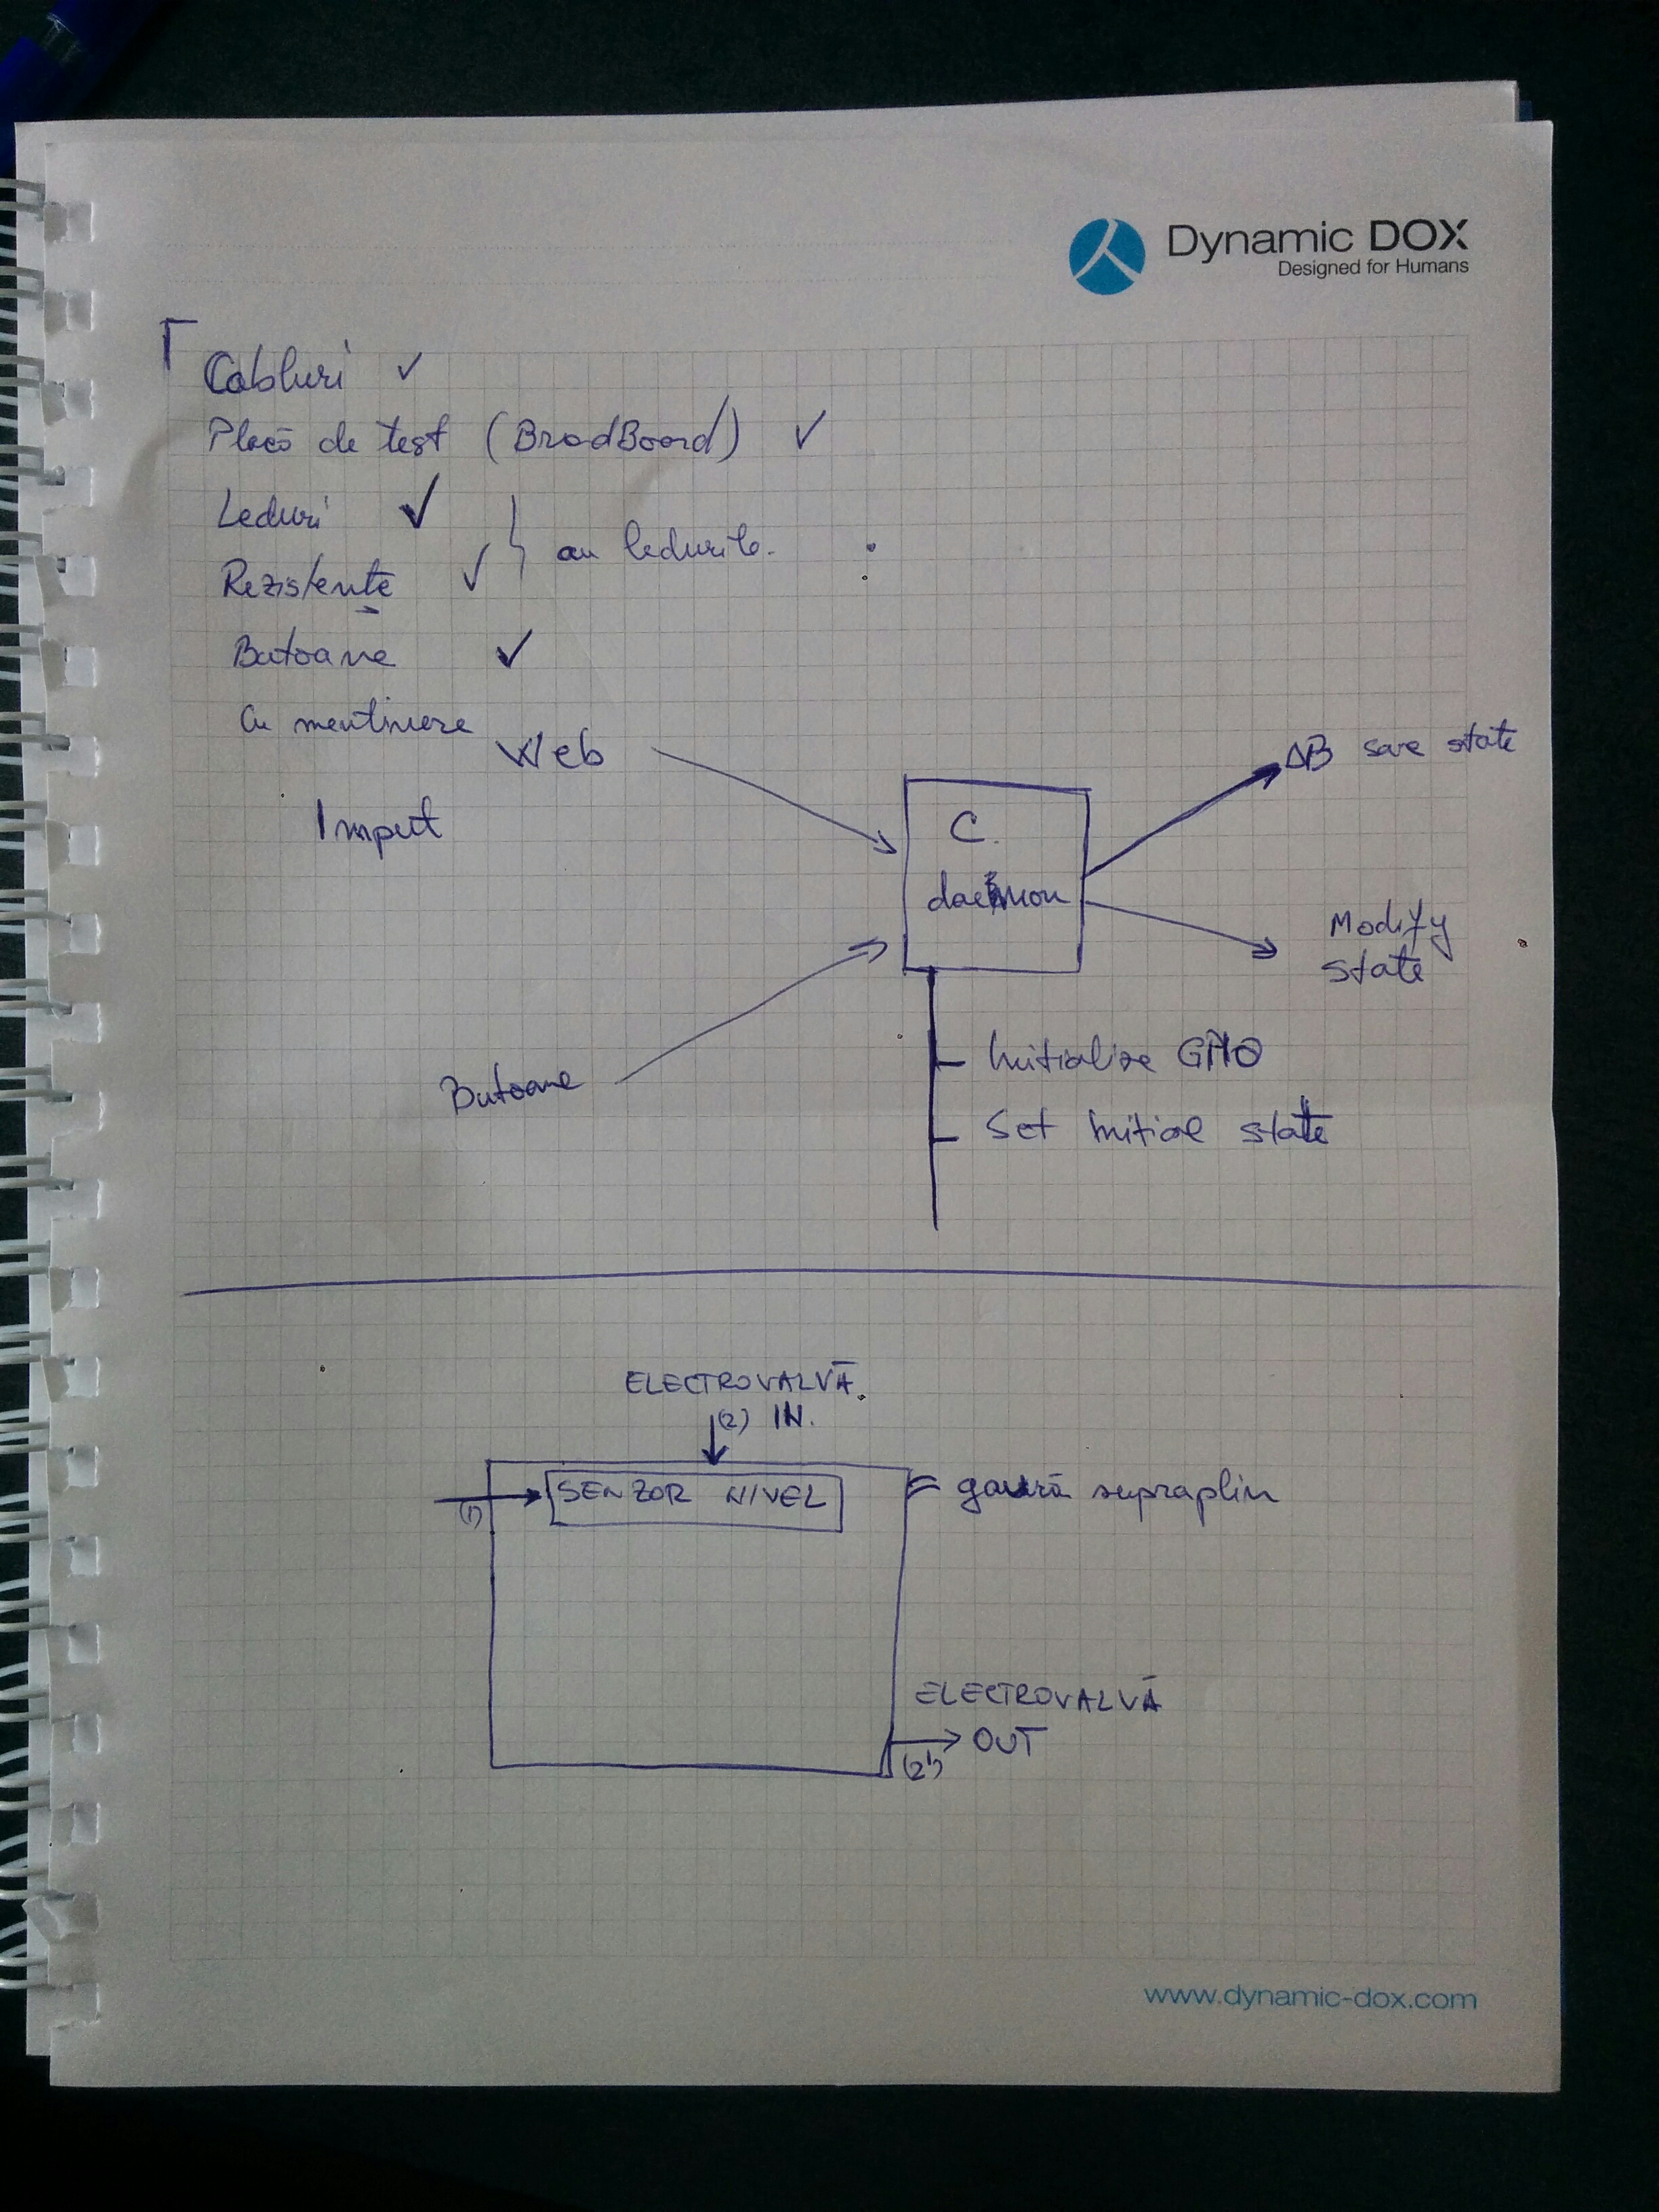 Dynamic DOX
Designed for Humans
Cabluri ✓
Placă de test (BradBoard) ✓
Leduri ✓
au ledurile.
Rezistențe ✓
Butoane ✓
Cu mentinere
Web
Imput
C
daemon
DB save state
Modify
state
Butoane
Initialize GPIO
Set initial state
ELECTROVALVĂ
(2) IN.
(1)
SENZOR NIVEL
gaură supraplin
ELECTROVALVĂ
OUT
(2')
www.dynamic-dox.com